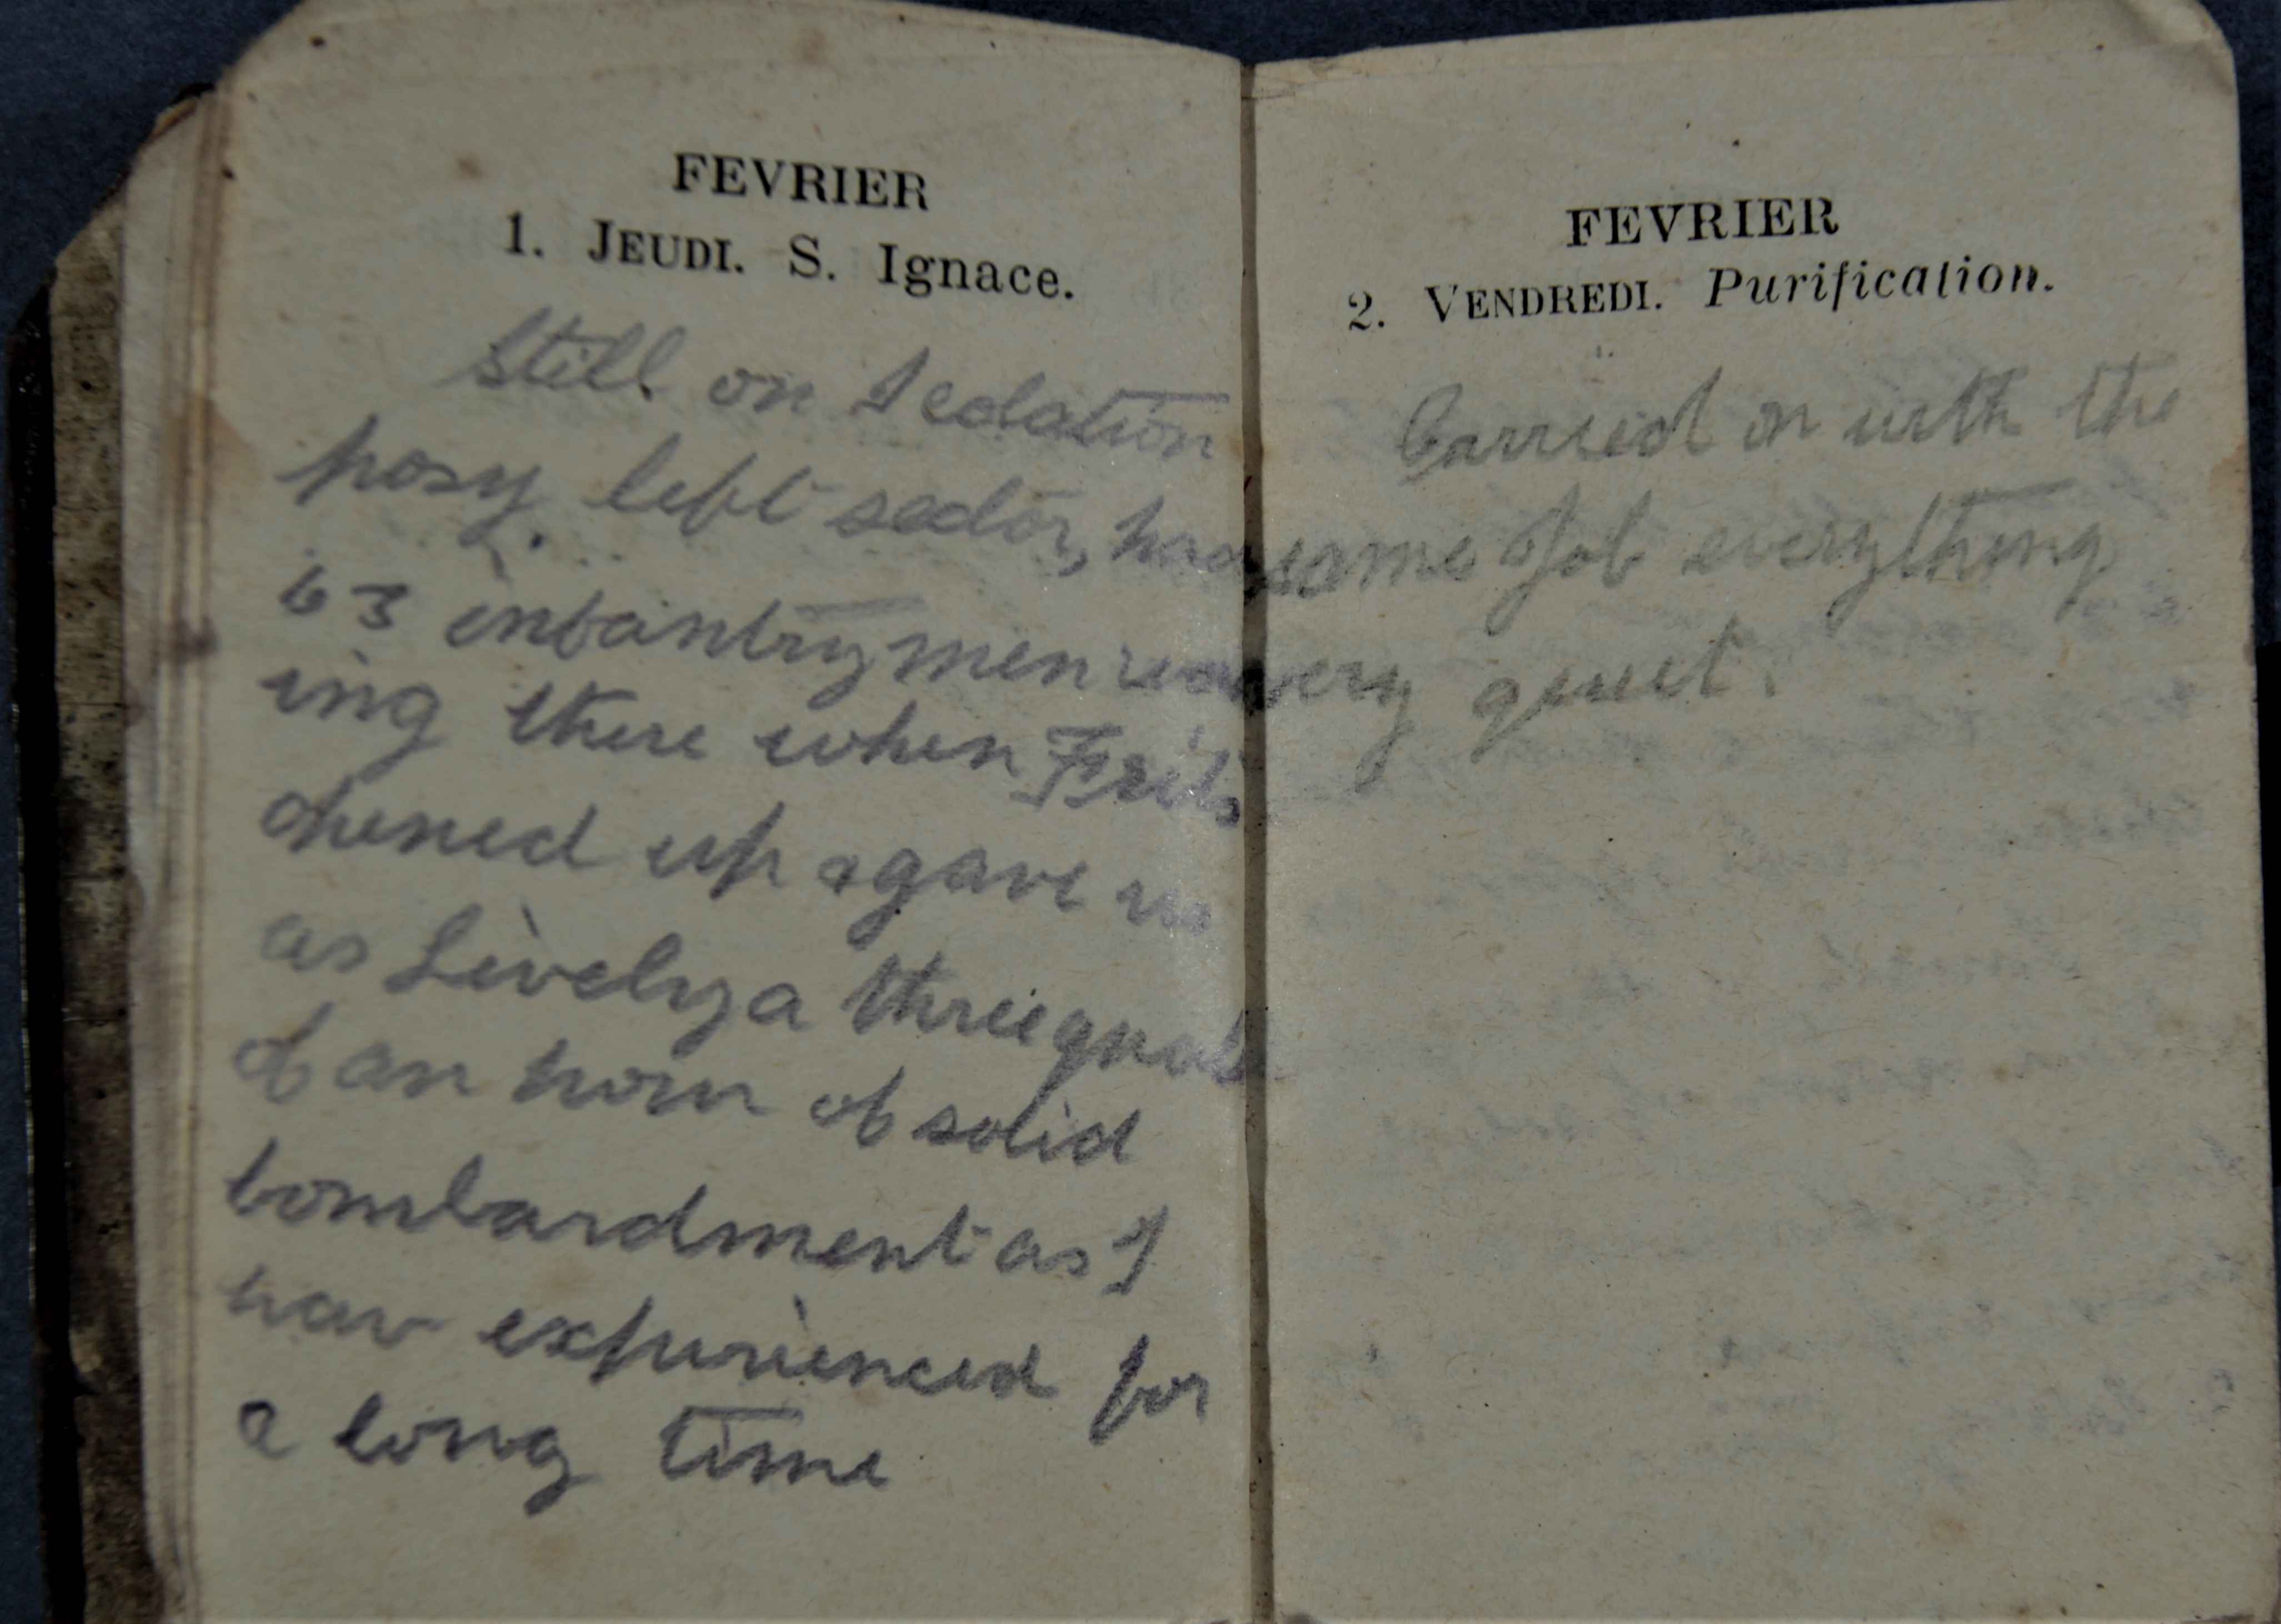 FEVRIER
1. JEUDI. S. Ignace.
Still on Isolation
posy. left sector, had
63 infantrymen
ing there when Fritz
opened up & gave us
as Lively a three quat
of an hour of solid
bombardment as I
hav experienced for
a long time
FEVRIER
2. VENDREDI. Purification.
Carried on with the
same Job everything
very quiet.